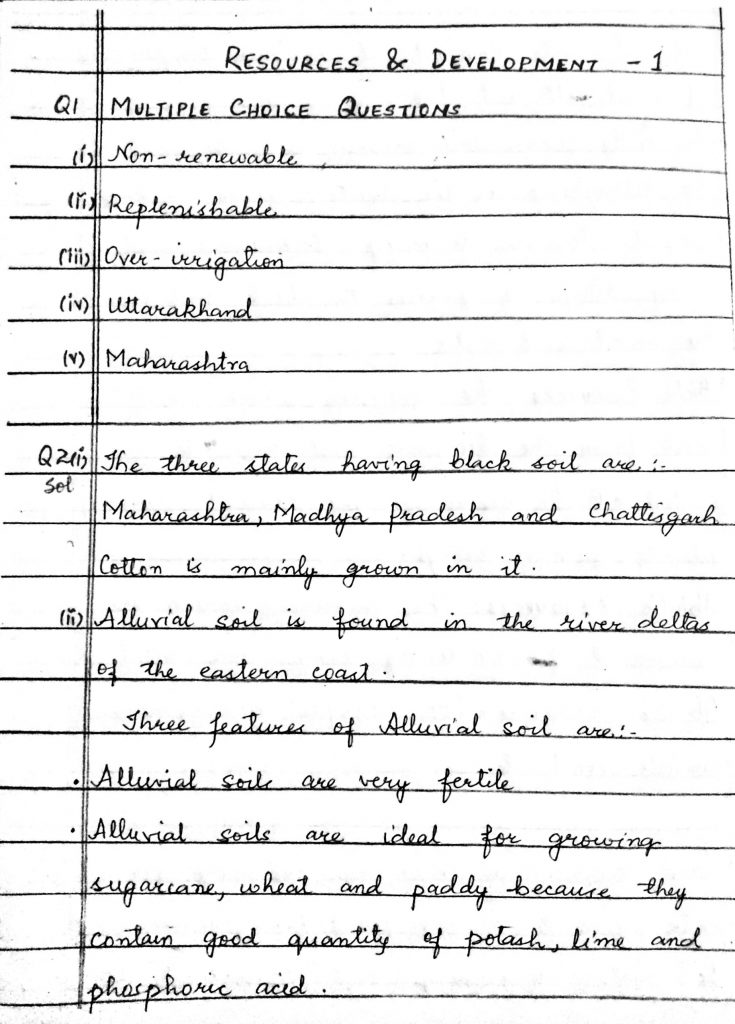 RESOURCES & DEVELOPMENT - 1
Q1 MULTIPLE CHOICE QUESTIONS
(i) Non-renewable
(ii) Replenishable
(iii) Over-irrigation
(iv) Uttarakhand
(v) Maharashtra
Q2(i) The three states having black soil are:-
Sol
Maharashtra, Madhya Pradesh and Chattisgarh
Cotton is mainly grown in it.
(ii) Alluvial soil is found in the river deltas
of the eastern coast.
Three features of Alluvial soil are:-
• Alluvial soils are very fertile
• Alluvial soils are ideal for growing
sugarcane, wheat and paddy because they
contain good quantity of potash, lime and
phosphoric acid.